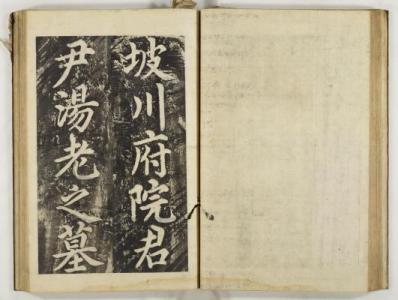 坡川府院君
尹湯老之墓